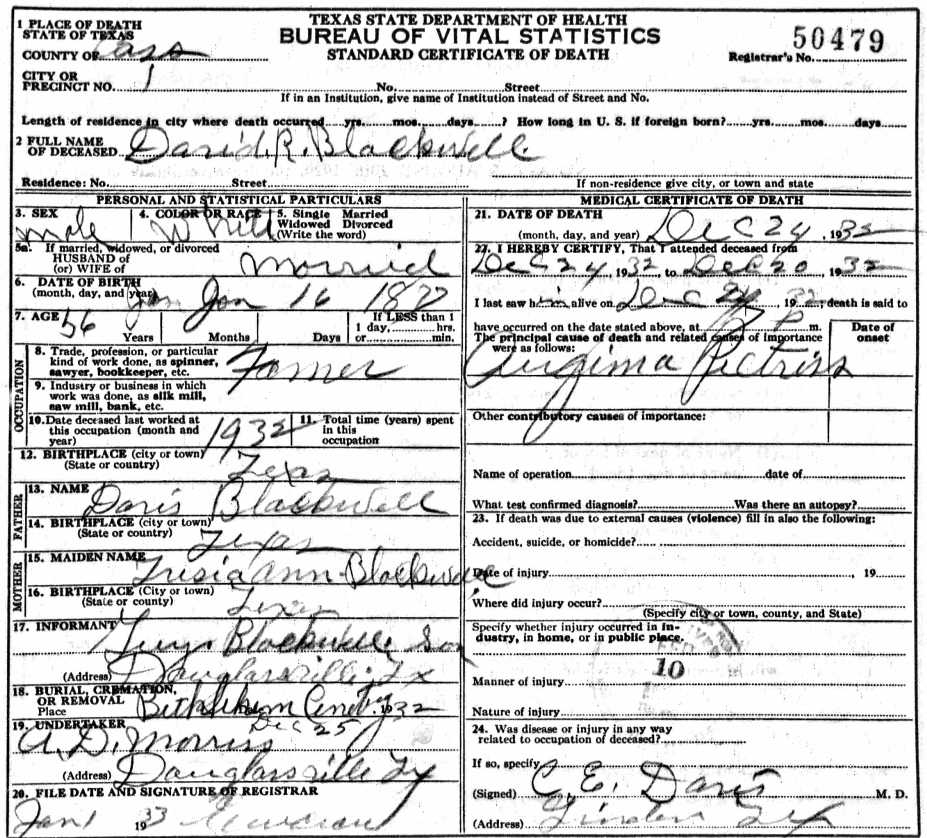 TEXAS STATE DEPARTMENT OF HEALTH
BUREAU OF VITAL STATISTICS
STANDARD CERTIFICATE OF DEATH
50479
Registrar's No.
1 PLACE OF DEATH
STATE OF TEXAS
COUNTY OF Cass
CITY OR
PRECINCT NO. 1 No. Street
If in an Institution, give name of Institution instead of Street and No.
Length of residence in city where death occurred yrs. mos. days ? How long in U. S. if foreign born? yrs. mos. days
2 FULL NAME
OF DECEASED David R. Blackwell
Residence: No. Street If non-residence give city, or town and state
PERSONAL AND STATISTICAL PARTICULARS
3. SEX 4. COLOR OR RACE 5. Single Married
Widowed Divorced
(Write the word)
male White
5a. If married, widowed, or divorced
HUSBAND of
(or) WIFE of Married
6. DATE OF BIRTH
(month, day, and year) Jan 16
7. AGE 56 Years Months Days If LESS than 1
1 day, hrs.
or min.
OCCUPATION
8. Trade, profession, or particular
kind of work done, as spinner,
sawyer, bookkeeper, etc. Farmer
9. Industry or business in which
work was done, as silk mill,
saw mill, bank, etc.
10. Date deceased last worked at
this occupation (month and
year) 1932
11. Total time (years) spent
in this
occupation
12. BIRTHPLACE (city or town)
(State or country) Texas
FATHER
13. NAME Blackwell
14. BIRTHPLACE (city or town)
(State or country) Texas
MOTHER
15. MAIDEN NAME Ann Blackwell
16. BIRTHPLACE (city or town)
(State or country) Texas
17. INFORMANT Blackwell Son
(Address) Douglassville Tx
18. BURIAL, CREMATION,
OR REMOVAL
Place Bethlehem Cemt. 1932
Dec 25
19. UNDERTAKER
A. D. Morriss
(Address) Douglassville Tx
20. FILE DATE AND SIGNATURE OF REGISTRAR
Jan 1 1933
MEDICAL CERTIFICATE OF DEATH
21. DATE OF DEATH
(month, day, and year) Dec 24, 1932
22. I HEREBY CERTIFY, That I attended deceased from
Dec 24, 1932, to Dec 20, 1932
I last saw him alive on Dec 24 1932, death is said to
have occurred on the date stated above, at P m.
The principal cause of death and related causes of importance
were as follows: Date of
onset
Angima Pectriss
Other contributory causes of importance:
Name of operation date of
What test confirmed diagnosis? Was there an autopsy?
23. If death was due to external causes (violence) fill in also the following:
Accident, suicide, or homicide?
Date of injury , 19
Where did injury occur?
(Specify city or town, county, and State)
Specify whether injury occurred in in-
dustry, in home, or in public place.
10
Manner of injury
Nature of injury
24. Was disease or injury in any way
related to occupation of deceased?
If so, specify
(Signed) C. E. Davis M. D.
(Address) Linden Tex